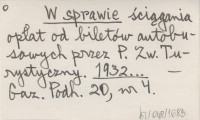 W sprawie ściągania
opłat od biletów autobu-
sowych przez P. Zw. Tu-
rystyczny. 1932... —
Gaz. Podh. 20, nr 4.